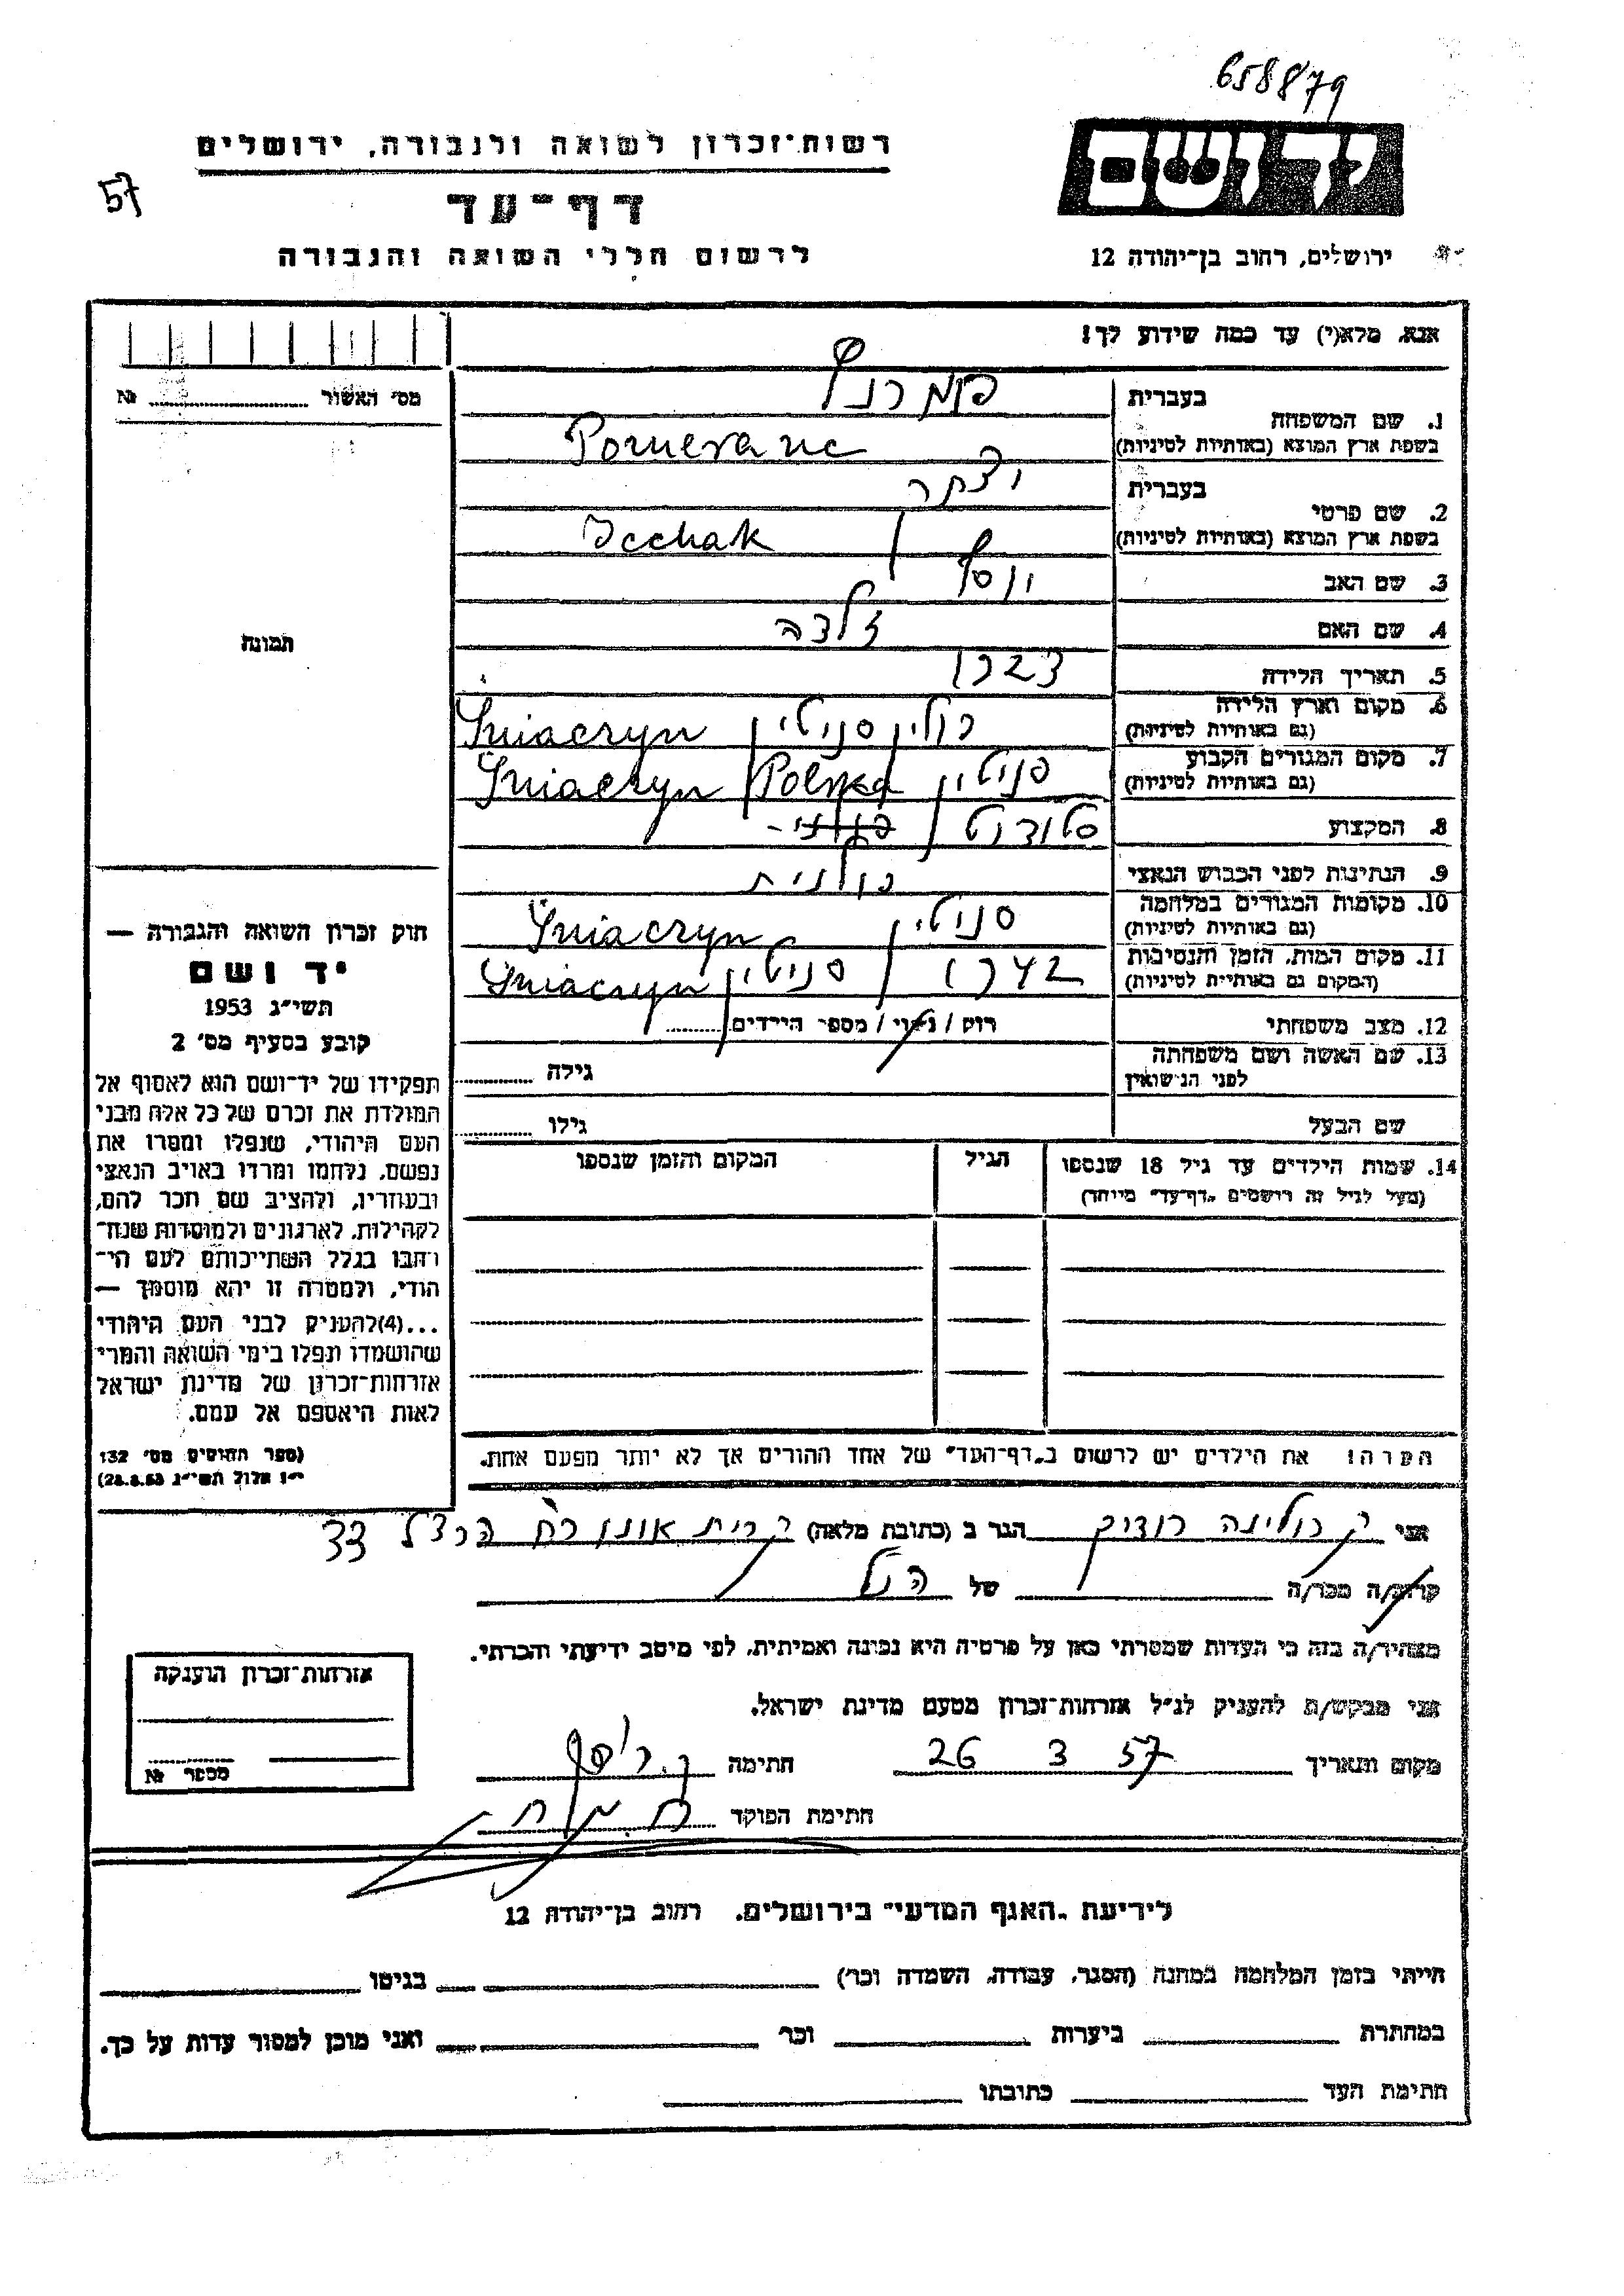 658879
יד ושם
רשות-זכרון לשואה ולגבורה, ירושלים
57
דף-עד
לרשום חללי השואה והגבורה
ירושלים, רחוב בן-יהודה 12
אנא, מלא(י) עד כמה שידוע לך!
מס' האשור № 
1. שם המשפחה
בעברית
פומרנץ
בשפת ארץ המוצא (באותיות לטיניות)
Pomeranc
2. שם פרטי
בעברית
יצחק
בשפת ארץ המוצא (באותיות לטיניות)
Icchak
3. שם האב
יוסף
4. שם האם
זלדה
5. תאריך הלידה
6. מקום וארץ הלידה
(גם באותיות לטיניות)
פולין סניטין Śniaczyn
7. מקום המגורים הקבוע
(גם באותיות לטיניות)
סניטין Polska Śniaczyn
8. המקצוע
סטודנט
9. הנתינות לפני הכבוש הנאצי
פולנית
10. מקומות המגורים במלחמה
(גם באותיות לטיניות)
סניטין Śniaczyn
11. מקום המות, הזמן והנסיבות
(המקום גם באותיות לטיניות)
סניטין Śniaczyn
12. מצב משפחתי
רוק / נשוי / מספר הילדים
13. שם האשה ושם משפחתה
לפני הנישואין
גילה
שם הבעל
גילו
14. שמות הילדים עד גיל 18 שנספו
(מעל לגיל זה רושמים "דף-עד" מיוחד)
הגיל
המקום והזמן שנספו
הערה! את הילדים יש לרשום ב"דף-העד" של אחד ההורים אך לא יותר מפעם אחת.
תמונה
חוק זכרון השואה והגבורה —
יד ושם
תשי"ג 1953
קובע בסעיף מס' 2
תפקידו של יד-ושם הוא לאסוף אל
המולדת את זכרם של כל אלה מבני
העם היהודי, שנפלו ומסרו את
נפשם, נלחמו ומרדו באויב הנאצי
ובעוזריו, ולהציב שם וזכר להם,
לקהילות, לארגונים ולמוסדות שנח-
רבו בגלל השתייכותם לעם הי-
הודי, ולמטרה זו יהא מוסמך —
...(4)להעניק לבני העם היהודי
שהושמדו ונפלו בימי השואה והמרי
אזרחות-זכרון של מדינת ישראל
לאות היאספם אל עמם.
(ספר החוקים מס' 132
י"ז אלול תשי"ג 28.8.53)
אני קרולינה רודיק הגר ב (כתובת מלאה) קרית אונו רח הרצל 33
קרוב/ה מכר/ה של הנ"ל
מצהיר/ה בזה כי העדות שמסרתי כאן על פרטיה היא נכונה ואמיתית, לפי מיטב ידיעתי והכרתי.
אני מבקש/ת להעניק לנ"ל אזרחות-זכרון מטעם מדינת ישראל.
מקום ותאריך 26 3 57 חתימה
חתימת הפוקד
אזרחות-זכרון הוענקה
מספר №
לידיעת "האגף המדעי" בירושלים, רחוב בן-יהודה 12
הייתי בזמן המלחמה במחנה (הסגר, עבודה, השמדה וכר') בגיטו
במחתרת ביערות וכר ואני מוכן למסור עדות על כך.
חתימת העד כתובתו